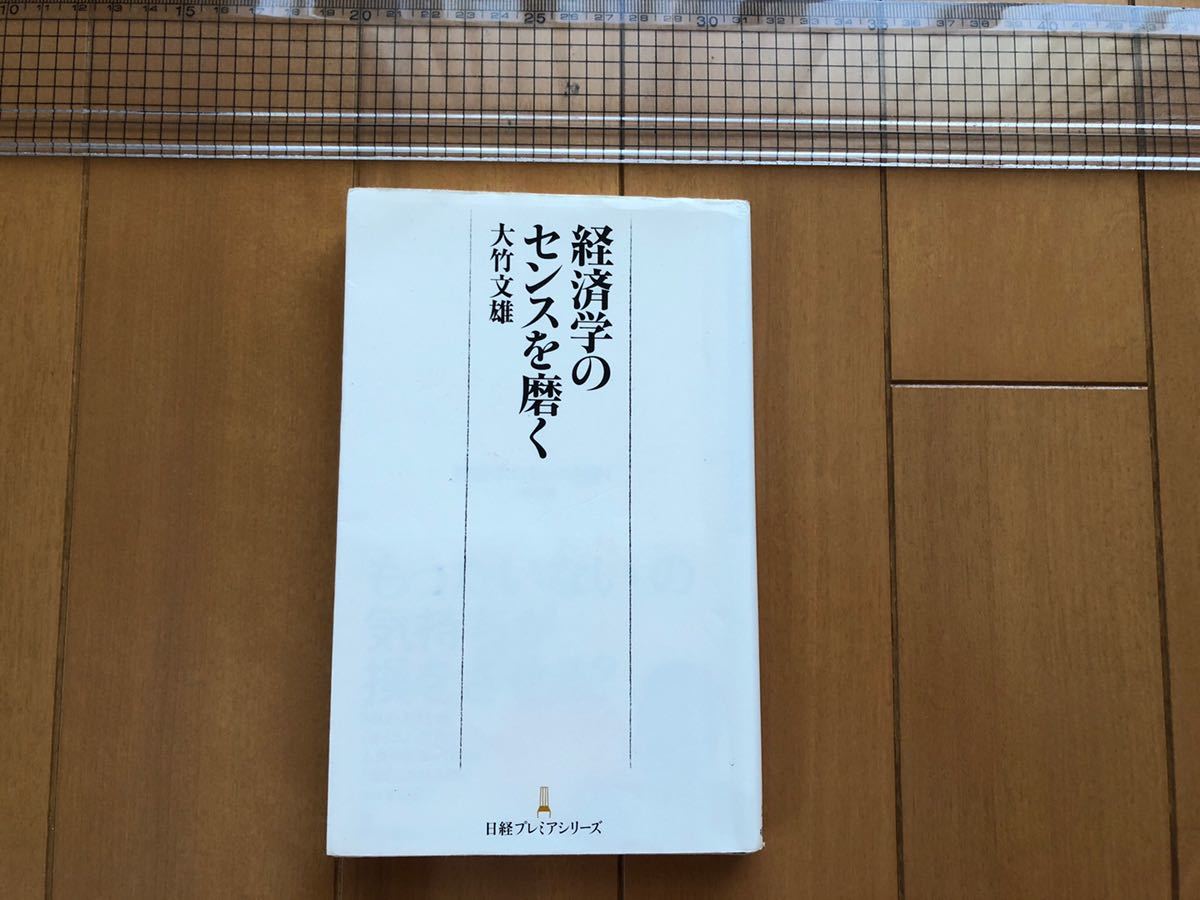 10 11 12 13 14 15 16 17 18 19 20 21 22 23 24 25 26 27 28 29 30 31 32 33 34 35 36 37 38 39 40 41 42 43
経済学の
センスを磨く
大竹文雄
日経プレミアシリーズ